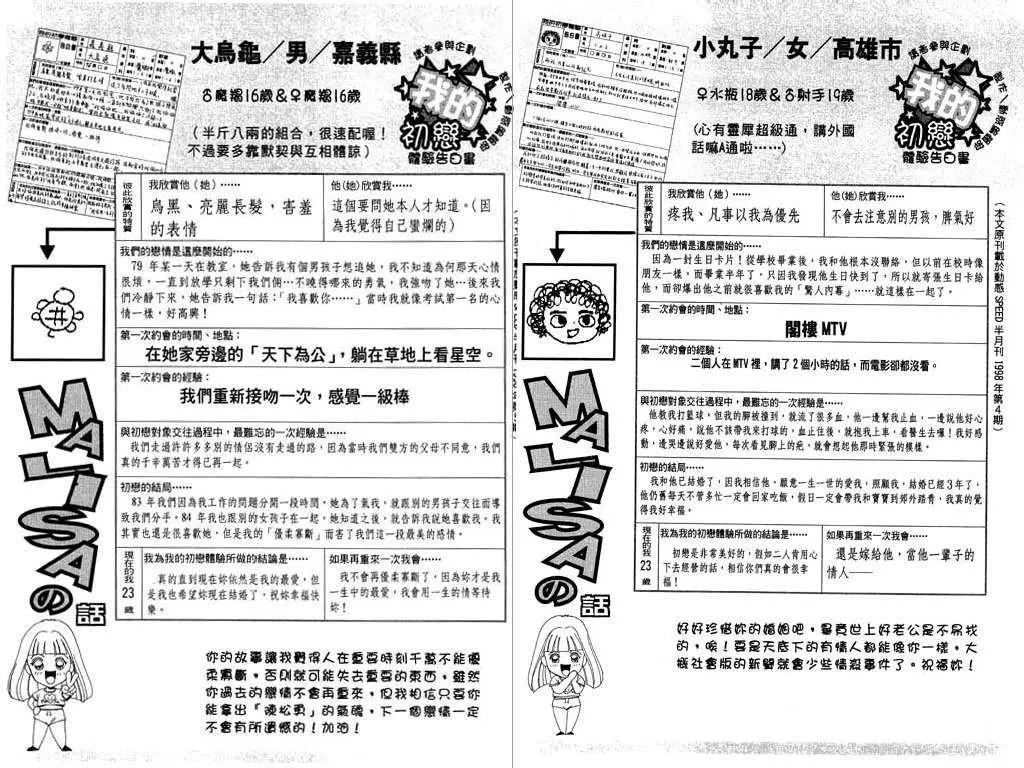 大烏龜／男／嘉義縣
♂魔羯16歲＆♀魔羯16歲
（半斤八兩的組合，很速配喔！
不過要多靠默契與互相體諒）
讀者參與企劃
我的
初戀
體驗告白書
彼此欣賞的特質
我欣賞他（她）……
烏黑、亮麗長髮，害羞
的表情
他(她)欣賞我……
這個要問她本人才知道。（因
為我覺得自己蠻爛的）
我們的戀情是這麼開始的……
79 年某一天在教室，她告訴我有個男孩子想追她，我不知道為何那天心情
很煩，一直到放學只剩下我們倆…不曉得哪來的勇氣，我強吻了她…後來我
們冷靜下來，她告訴我一句話：「我喜歡你……」當時我就像考試第一名的心
情一樣，好高興！
第一次約會的時間、地點：
在她家旁邊的「天下為公」，躺在草地上看星空。
第一次約會的經驗：
我們重新接吻一次，感覺一級棒
與初戀對象交往過程中，最難忘的一次經驗是……
我們走過許許多多別的情侶沒有走過的路，因為當時我們雙方的父母不同意，我們
真的千辛萬苦才得已再一起。
初戀的結局……
83 年我們因為我工作的問題分開一段時間，她為了氣我，就跟別的男孩子交往而導
致我們分手，84 年我也跟別的女孩子在一起，她知道之後，就告訴我說她喜歡我，我
其實也還是很喜歡她，但是我的「優柔寡斷」而害了我們這一段最美的感情。
現在的我23歲
我為我的初戀體驗所做的結論是……
真的直到現在妳依然是我的最愛，但
是我也希望妳現在結婚了，祝妳幸福快
樂。
如果再重來一次我會……
我不會再優柔寡斷了，因為妳才是我
一生中的最愛，我會用一生的情等待
妳！
MALISA
の
話
你的故事讓我覺得人在重要時刻千萬不能優
柔寡斷，否則就可能失去重要的東西，雖然
你過去的戀情不會再重來，但我相信只要你
能拿出「陳松勇」的氣魄，下一個戀情一定
不會有所遺憾的！加油！
小丸子／女／高雄市
♀水瓶18歲＆♂射手19歲
（心有靈犀超級通，講外國
話嘛A通啦……）
讀者參與企劃
我的
初戀
體驗告白書
彼此欣賞的特質
我欣賞他（她）……
疼我、凡事以我為優先
他(她)欣賞我……
不會去注意別的男孩，脾氣好
我們的戀情是這麼開始的……
因為一封生日卡片！從學校畢業後，我和他根本沒聯絡，但以前在校時像
朋友一樣，而畢業半年了，只因我發現他生日快到了，所以就寄張生日卡給
他，而卻爆出他之前就很喜歡我的「驚人內幕」……就這樣在一起了。
第一次約會的時間、地點：
閣樓 MTV
第一次約會的經驗：
二個人在 MTV 裡，講了 2 個小時的話，而電影卻都沒看。
與初戀對象交往過程中，最難忘的一次經驗是……
他教我打籃球，但我的腳被撞到，就流了很多血，他一邊幫我止血，一邊說他好心
疼，心好痛，說他不該帶我來打球的，血止住後，就抱我上車，看醫生去囉！我好感
動，邊哭邊說好愛他，每次看見腳上的疤，就會想起他那時緊張的模樣。
初戀的結局……
我和他已結婚了，因我相信他，願意一生一世的愛我，照顧我，結婚已經 3 年了，
他仍舊每天不管多忙一定會回家吃飯，假日一定會帶我和寶寶到郊外踏青，我真的覺
得我好幸福。
現在的我23歲
我為我的初戀體驗所做的結論是……
初戀是非常美好的，假如二人肯用心
下去經營的話，相信你們真的會很幸
福！
如果再重來一次我會……
還是嫁給他，當他一輩子的
情人——
（本文原刊載於動感 SPEED 半月刊 1998 年第 4 期）
MALISA
の
話
好好珍惜妳的婚姻吧，畢竟世上好老公是不易找
的，唉！要是天底下的有情人都能像你一樣，大
概社會版的新聞就會少些情殺事件了。祝福妳！